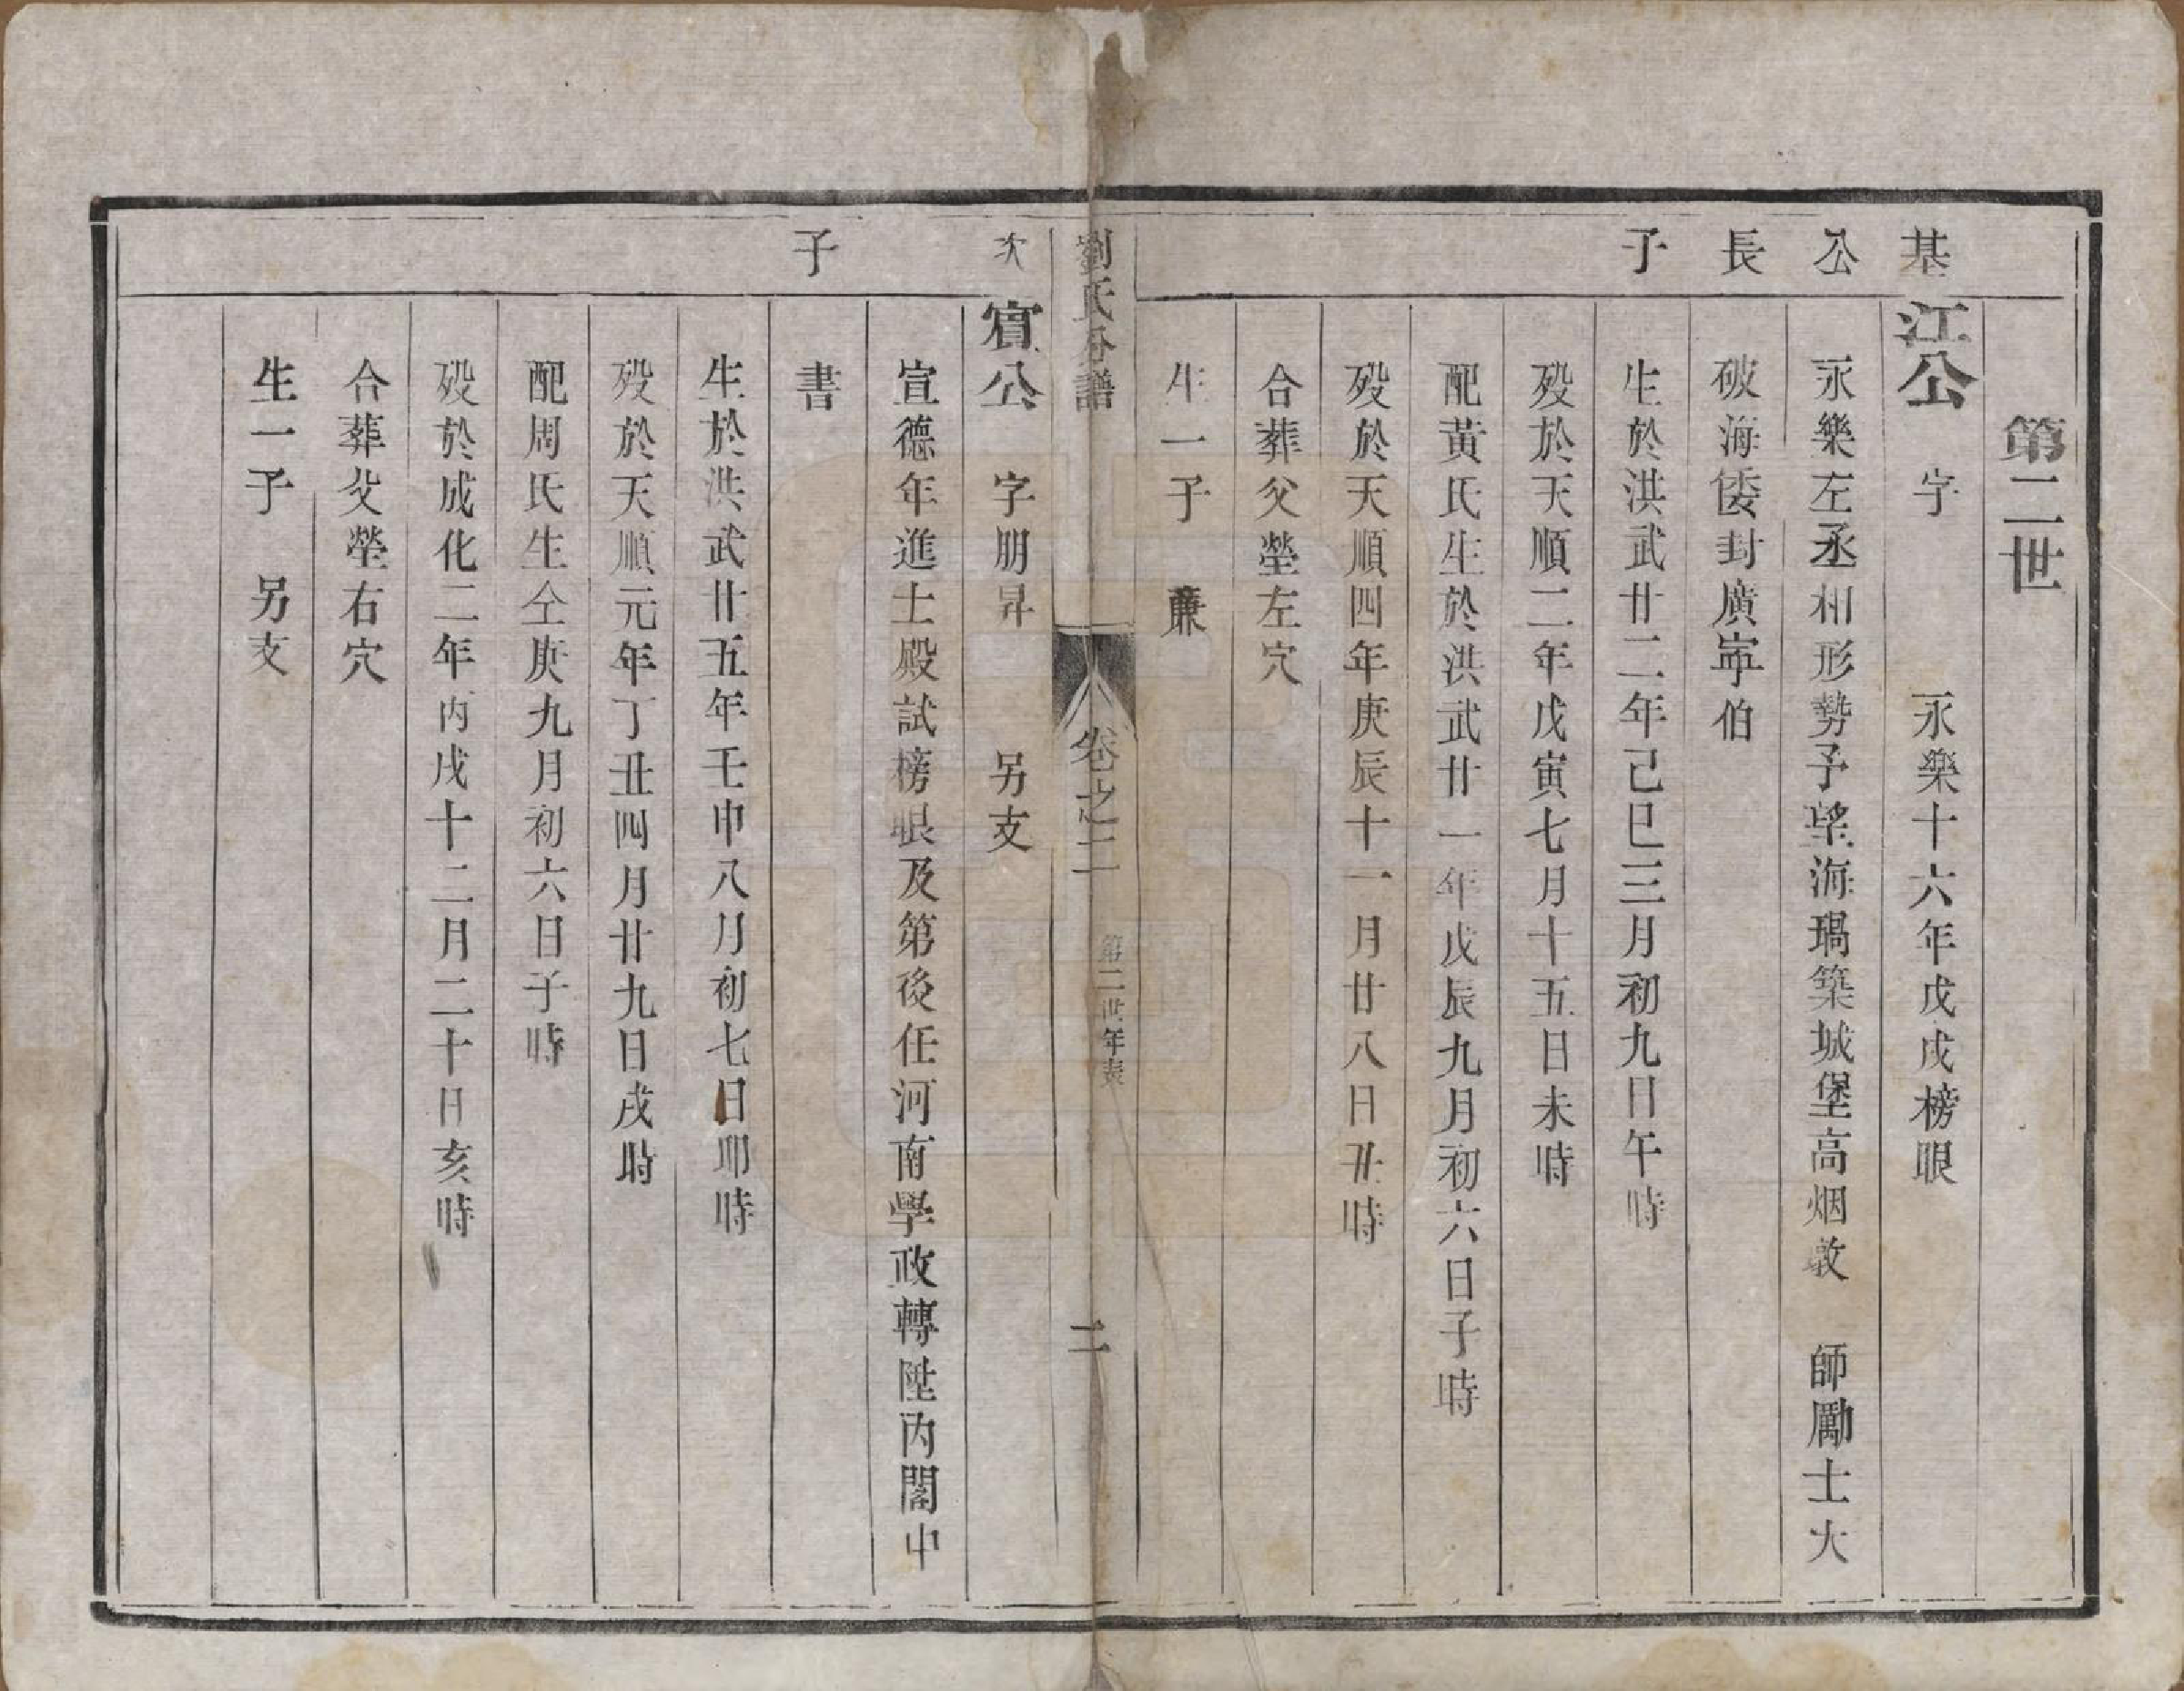 第二世
基公長子
江公　字　　永樂十六年戊戌榜眼
永樂左丞相形勢予望海堝築城堡高烟墩　師勵士大
破海倭封廣寧伯
生於洪武廿二年己巳三月初九日午時
歿於天順二年戊寅七月十五日未時
配黃氏生於洪武廿一年戊辰九月初六日子時
歿於天順四年庚辰十一月廿八日丑時
合葬父塋左穴
生一子　廉
劉氏分譜　卷之二　第二世年表　二
次子
賓公　字朋昇　　另支
宣德年進士殿試榜眼及第後任河南學政轉陞內閣中
書
生於洪武廿五年壬申八月初七日卯時
歿於天順元年丁丑四月廿九日戌時
配周氏生仝庚九月初六日子時
歿於成化二年丙戌十二月二十日亥時
合葬父塋右穴
生一子　另支